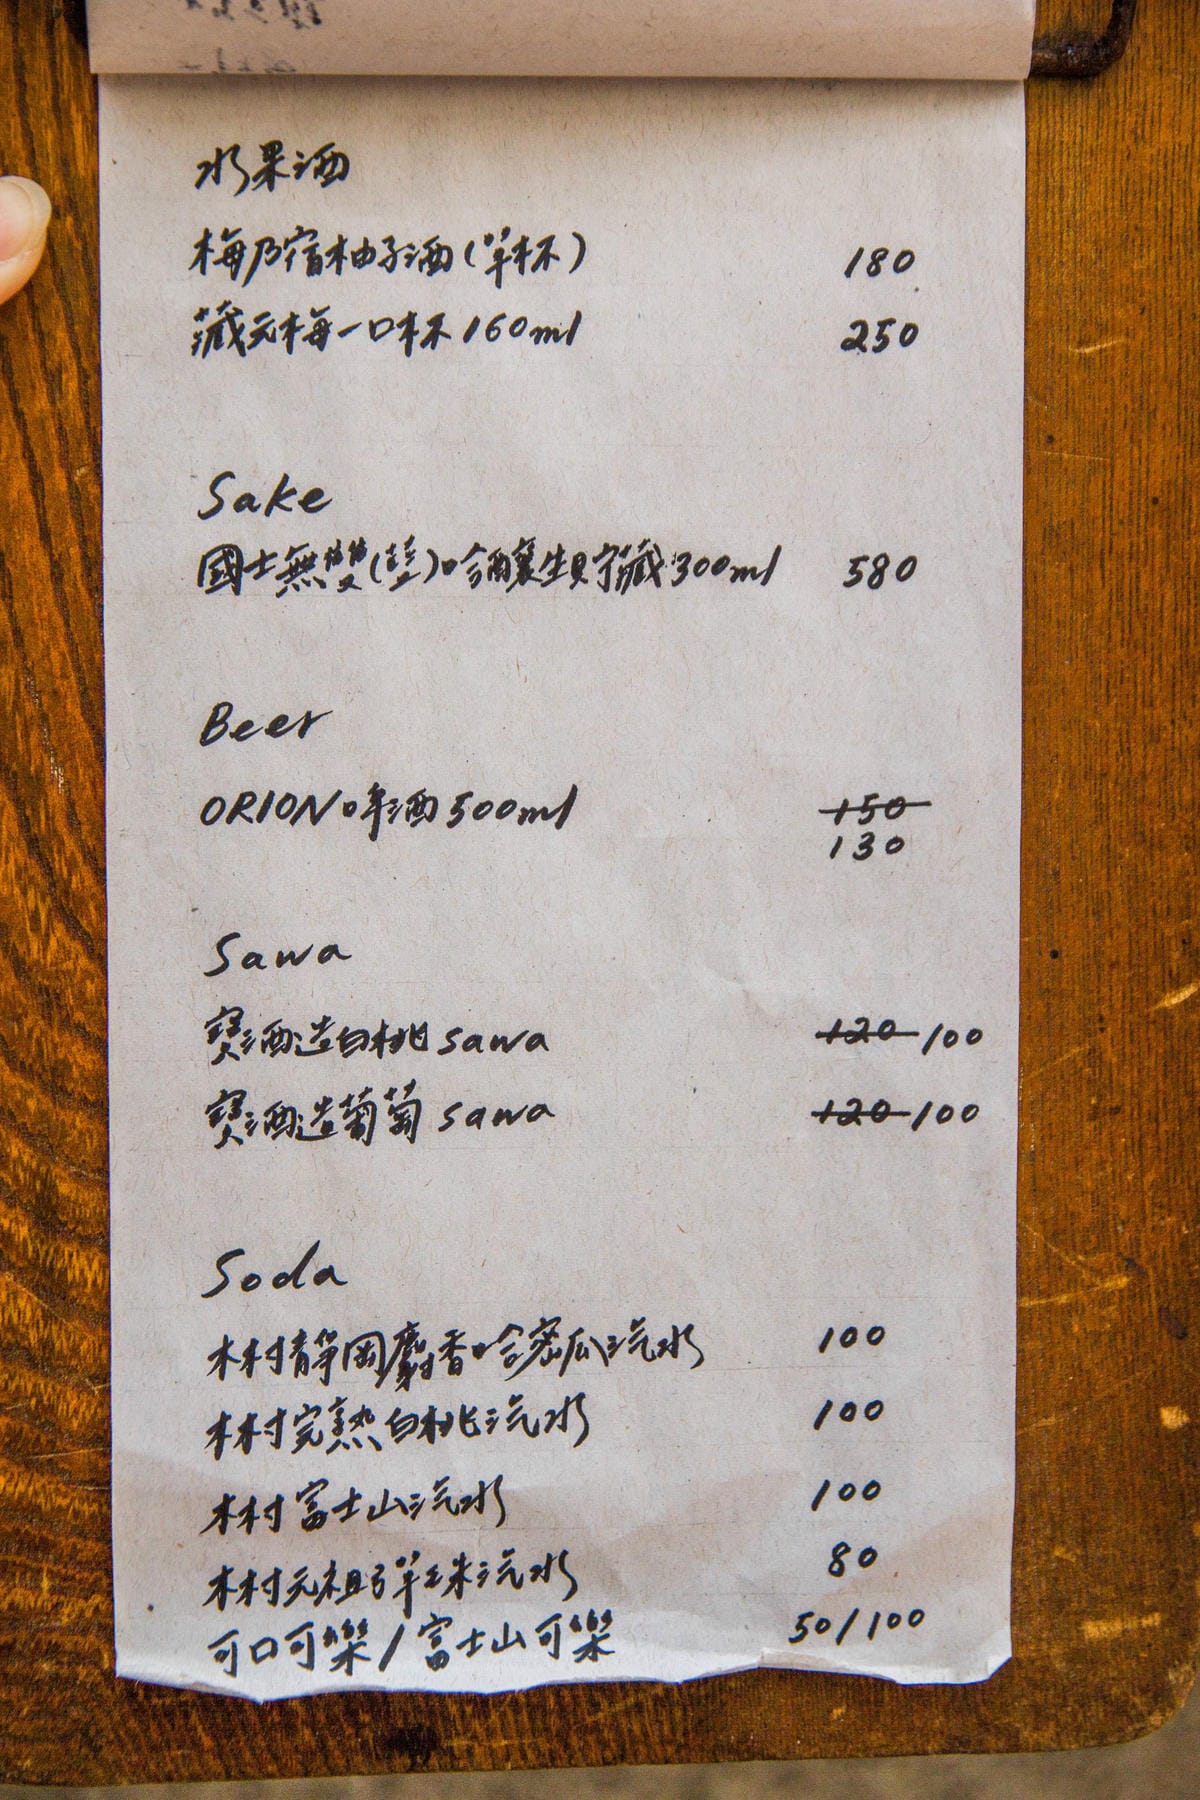 水果酒
梅乃宿柚子酒(單杯) 180
藏元梅一口杯 160ml 250
Sake
國士無雙(彗)吟釀生貯藏 300ml 580
Beer
ORION啤酒 500ml 150
130
Sawa
寶酒造白桃 sawa 120 100
寶酒造葡萄 sawa 120 100
Soda
木村靜岡麝香哈密瓜汽水 100
木村完熟白桃汽水 100
木村富士山汽水 100
木村元祖彈珠汽水 80
可口可樂/富士山可樂 50/100